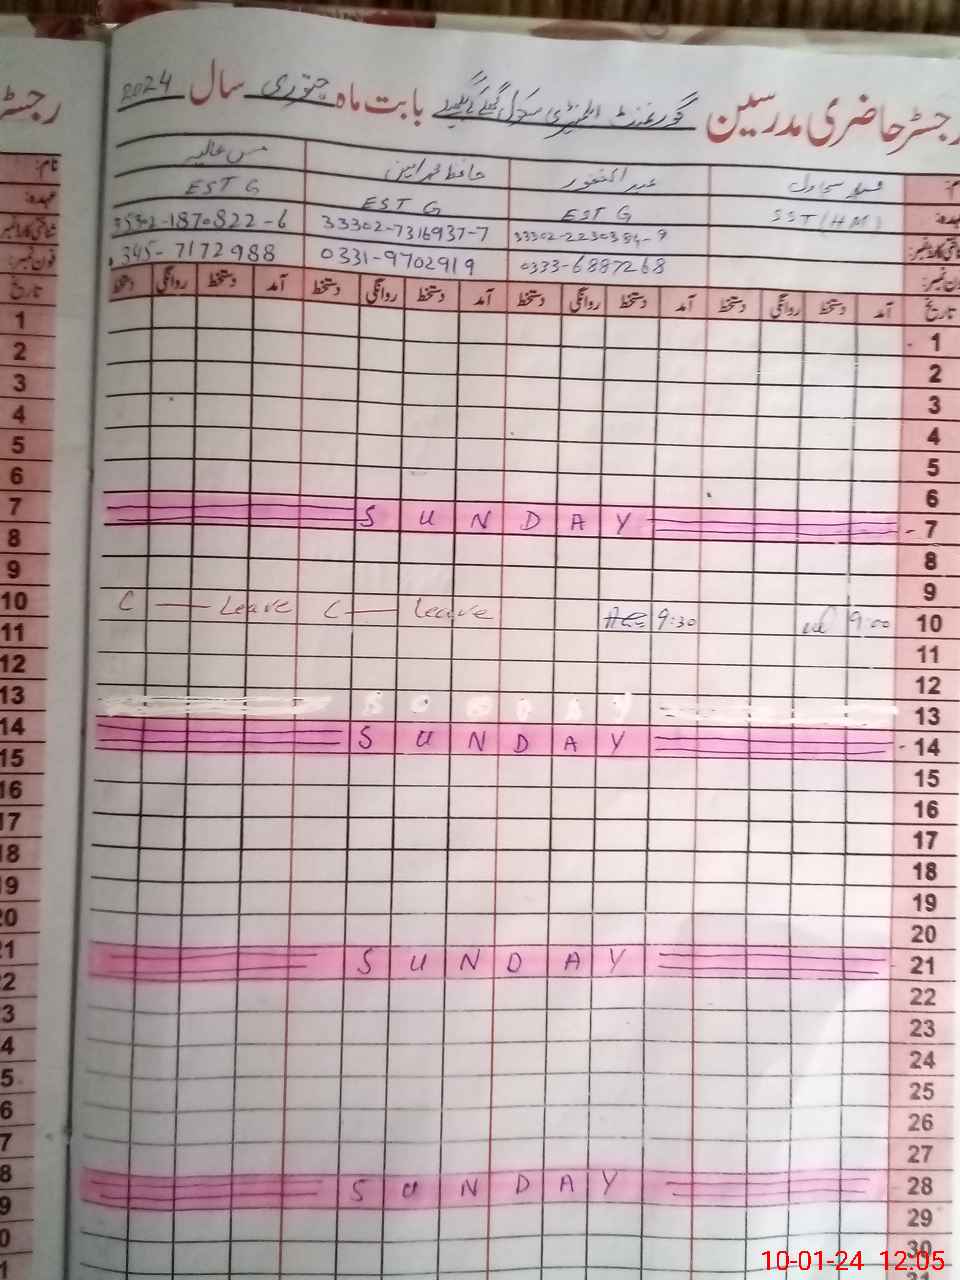 رجسٹر حاضری مدرسین گورنمنٹ ایلیمنٹری سکول بابت ماہ جنوری سال 2024
رجسٹر
مس عالیہ
EST G
35302-1870822-6
0345-7172988
حافظ محمد امین
EST G
33302-7316937-7
0331-9702919
عبدالغفور
EST G
33302-2230384-9
0333-6887268
SST (HM)
نام:
عہدہ:
شناختی کارڈ نمبر:
فون نمبر:
تاریخ آمد دستخط روانگی دستخط آمد دستخط روانگی دستخط آمد دستخط روانگی دستخط آمد دستخط روانگی دستخط تاریخ
1 1
2 2
3 3
4 4
5 5
6 6
7 SUNDAY 7
8 8
9 9
10 C — Leave C — Leave 9:30 9:00 10
11 11
12 12
13 13
14 SUNDAY 14
15 15
16 16
17 17
18 18
19 19
20 20
21 SUNDAY 21
22 22
23
24
25
26
27
SUNDAY 28
29
30
10-01-24 12:05